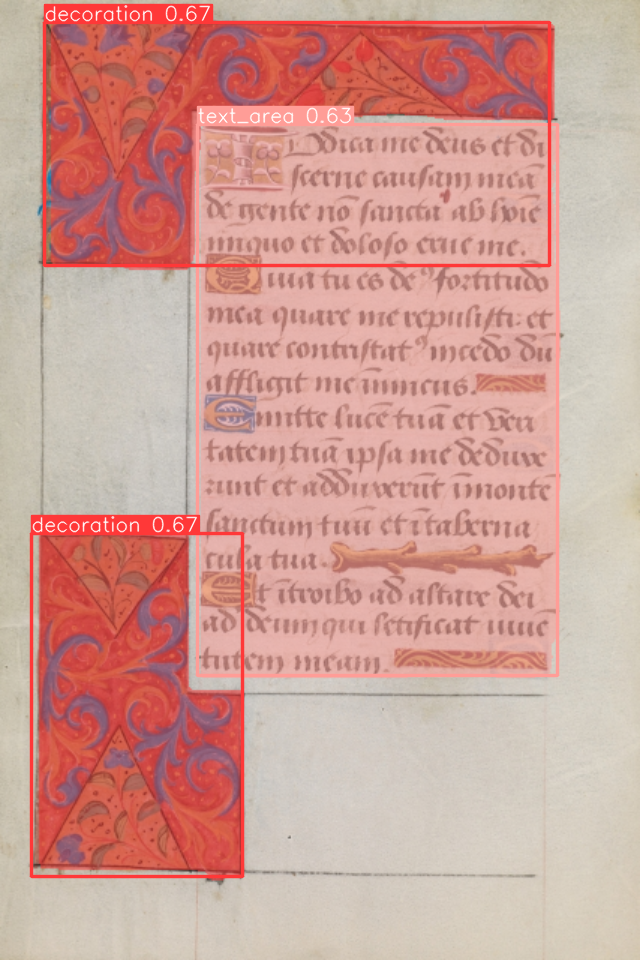 decoration 0.67
text_area 0.63
Iudica me deus et di
scerne causam meā
de gente nō sancta ab hoīe
iniquo et doloso erue me.
Quia tu es de⁹ fortitudo
mea quare me repulisti: et
quare contristat⁹ incedo dū
affligit me inimicus.
Emitte lucē tuā et veri
tatem tuā ipsa me deduxe
runt et adduxerūt ī montē
sanctum tuū et ī taberna
decoration 0.67
cula tua.
Et ītroibo ad altare dei
ad deum qui letificat iuuē
tutem meam.